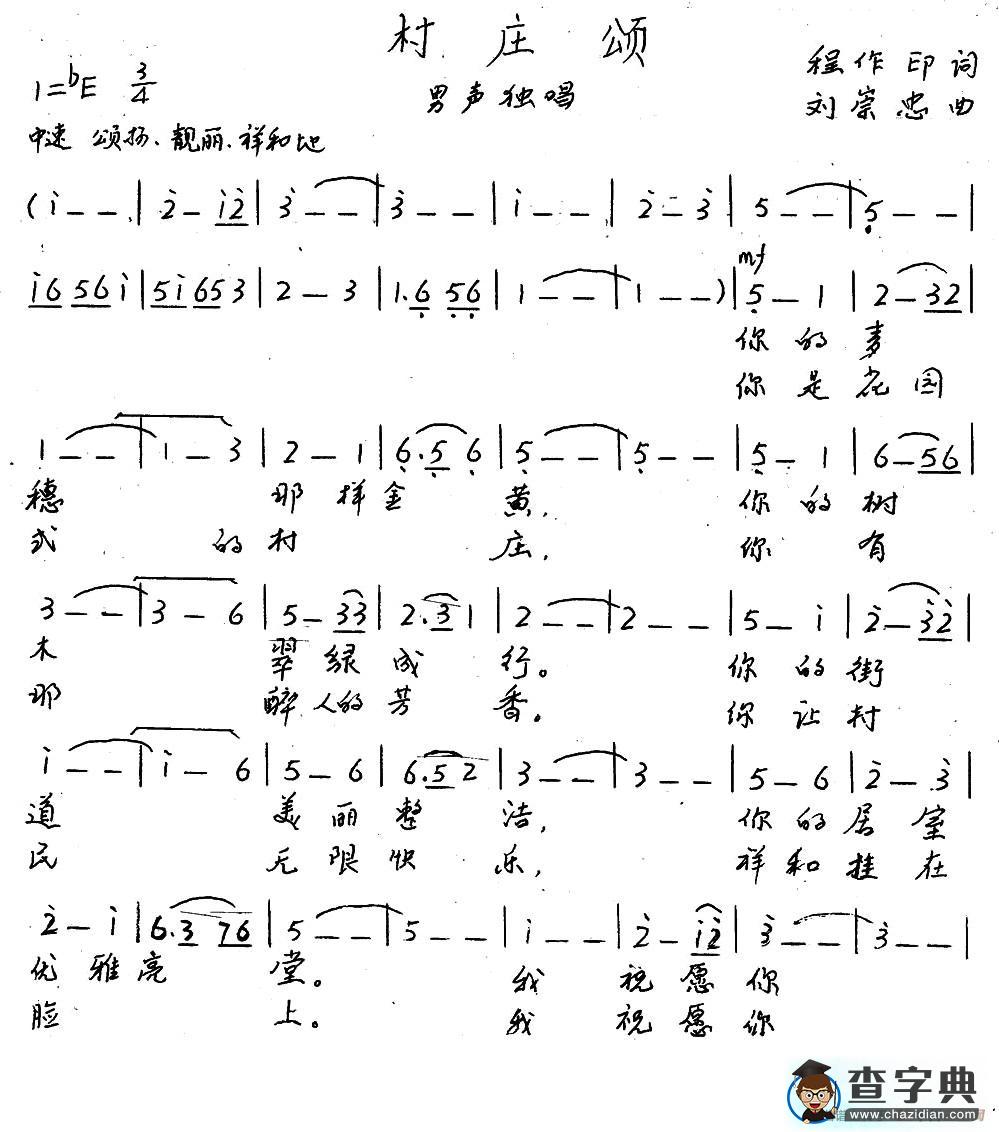 村庄颂
1=bE 3/4
男声独唱
程作印词
刘崇忠曲
中速 颂扬、靓丽、祥和地
(i - - | 2̇ - i2̇ | 3̇ - - | 3̇ - - | i - - | 2̇ - 3̇ | 5 - - | 5̣ - - |
i6 56 i | 5i 65 3 | 2 - 3 | 1. 6̣ 5̣6̣ | 1 - - | 1 - - ) | mf 5̣ - 1 | 2 - 32 |
你的麦
你是花园
1 - - | 1 - 3 | 2 - 1 | 6̣. 5̣ 6̣ | 5̣ - - | 5̣ - - | 5̣ - 1 | 6 - 56 |
穗 那样金黄, 你的树
式 的村 庄, 你 有
3 - - | 3 - 6 | 5 - 33 | 2. 3 1 | 2 - - | 2 - - | 5 - i | 2̇ - 3̇2̇ |
木 翠绿成行。 你的街
那 醉人的芳香。 你让村
i - - | i - 6 | 5 - 6 | 6. 5 2 | 3 - - | 3 - - | 5 - 6 | 2̇ - 3̇ |
道 美丽整洁, 你的居室
民 无限快乐, 祥和挂在
2̇ - i | 6. 3 76 | 5 - - | 5 - - | i - - | 2̇ - i2̇ | 3̇ - - | 3̇ - - |
优雅亮 堂。 我 祝愿你
脸 上。 我 祝愿你
查字典
www.chazidian.com